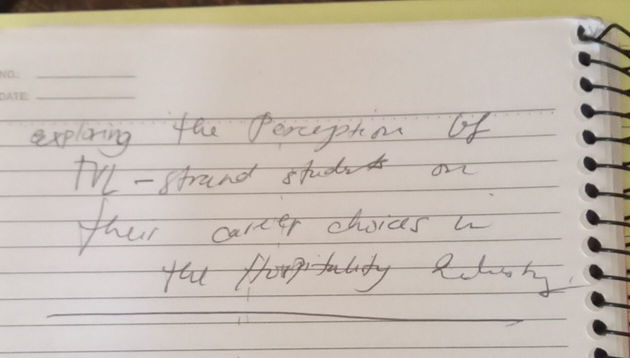 NO.:
DATE:
exploring the Perception of
TVL - strand students on
their career choices in
the Hospitality Industry.